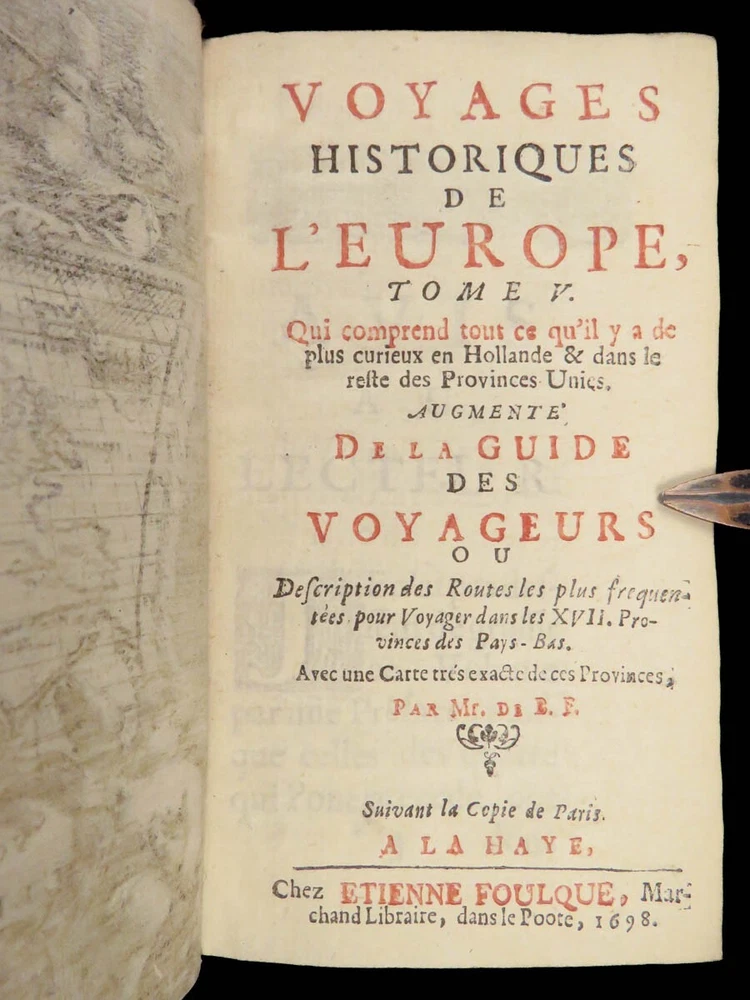 VOYAGES
HISTORIQUES
DE
L'EUROPE,
TOME V.
Qui comprend tout ce qu'il y a de
plus curieux en Hollande & dans le
reſte des Provinces Unies.
AUGMENTE'
DE LA GUIDE
DES
VOYAGEURS
OU
Deſcription des Routes les plus frequen-
tées pour Voyager dans les XVII. Pro-
vinces des Pays-Bas.
Avec une Carte trés exacte de ces Provinces,
PAR Mr. DE B. F.
Suivant la Copie de Paris.
A LA HAYE,
Chez ETIENNE FOULQUE, Mar-
chand Libraire, dans le Poote, 1698.